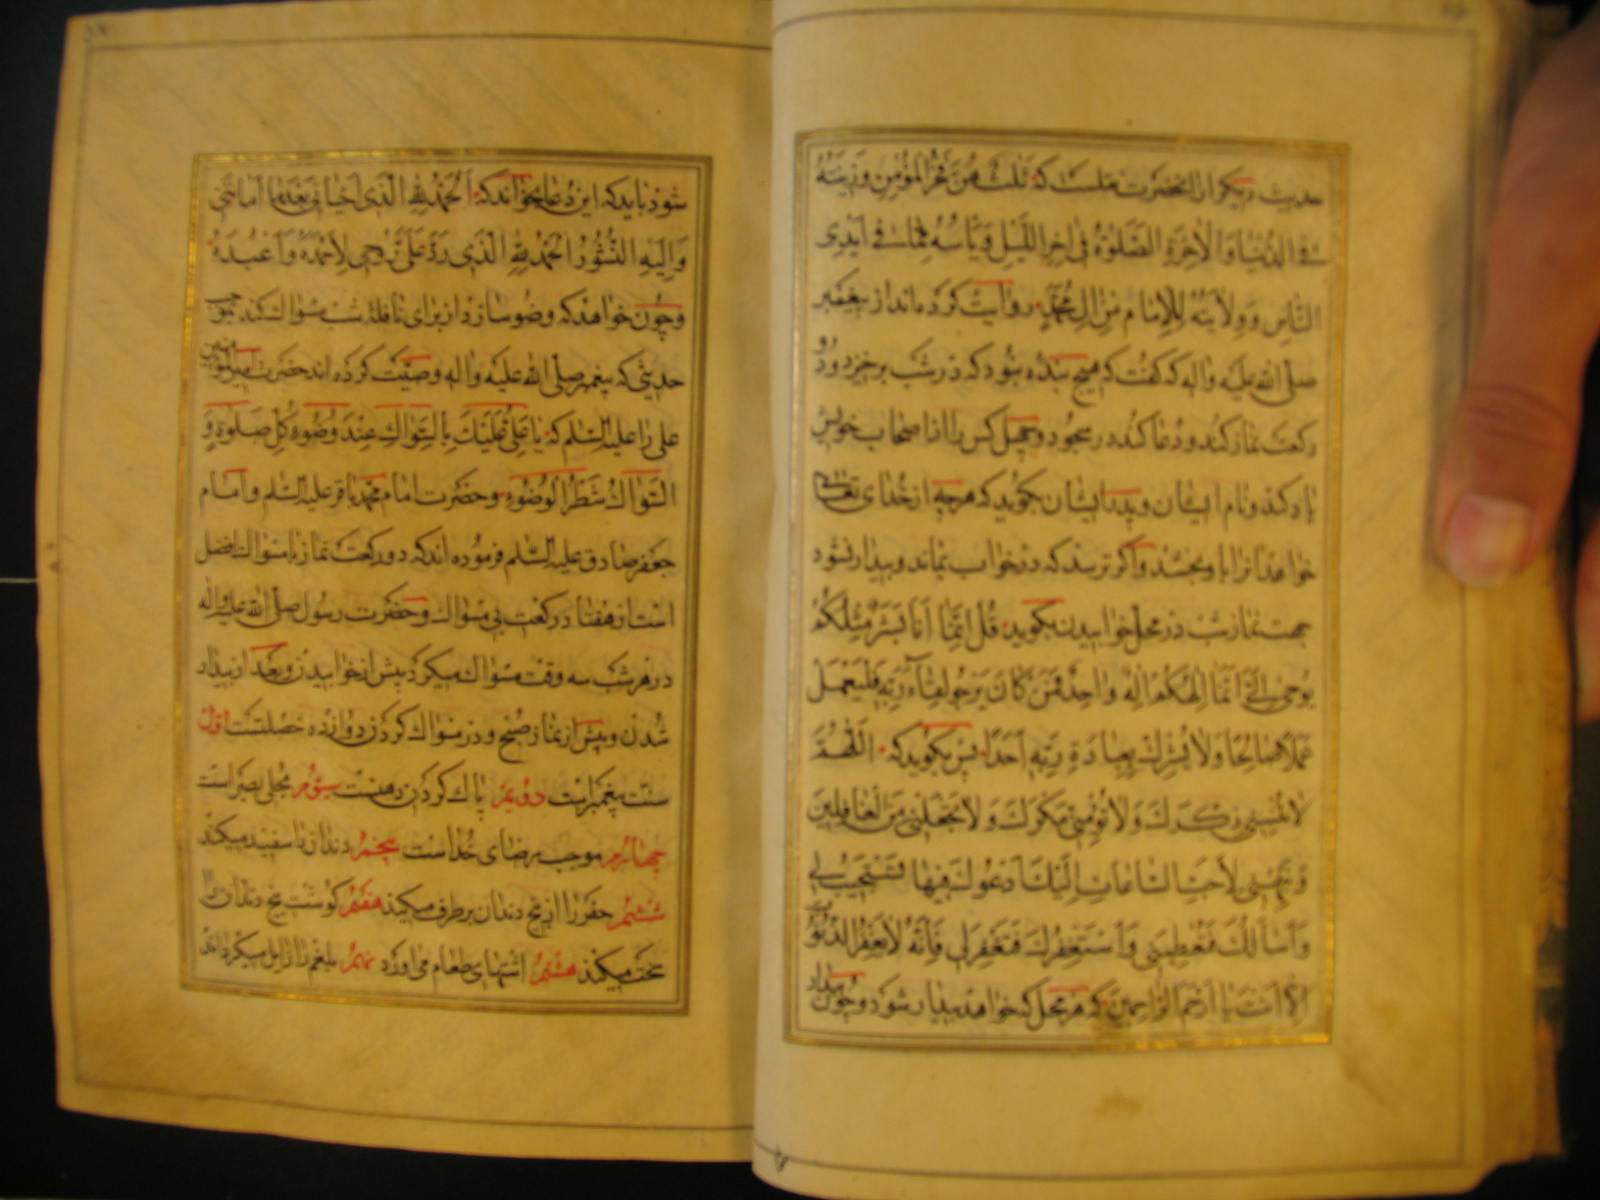 حدیث دیگر از انحضرت منلست که ثلث هن فخر المؤمن وزینته
فی الدنیا والاخرة الصلوة فی اخر اللیل ویاسه مما فی ایدی
الناس وولایته للامام من ال محمد روایت کرده‌اند از پیغمبر
صلی الله علیه واله که گفت که هیچ بنده نبود که در شب برخیزد ودو
رکعت نماز کند ودعا کند در سجود وچهل کس را از اصحاب خویش
یاد کند ونام ایشان وپدر ایشان بگوید که هرچه از خدای تعالی
خواهد انرا باو بخشد واگر ترسد که در خواب بماند وبیدار نشود
جهت نماز شب در محل خوابیدن بگوید قل انما انا بشر مثلکم
یوحی الی انما الهکم اله واحد فمن کان یرجو لقاء ربه فلیعمل
عملا صالحا ولا یشرک بعبادة ربه احدا پس بگوید که اللهم
لا تنسنی ذکرک ولا تؤمنی مکرک ولا تجعلنی من الغافلین
ونبهنی لاحب الساعات الیک ادعوک فیها فتستجیب لی
واسألک فتعطینی واستغفرک فتغفر لی فانه لا یغفر الذنوب
الا انت یا ارحم الراحمین که هر محل که خواهد بیدار شود وچون بیدار
شود باید که این دعا بخواند که الحمد لله الذی احیانی بعد ما اماتنی
والیه النشور الحمد لله الذی رد علی روحی لاحمده واعبده
وچون خواهد که وضو سازد از برای نافله شب مسواک کند بموجب
حدیثی که پیغمبر صلی الله علیه واله وصیت کرده اند حضرت امیر المؤمنین
علی را علیه السلم که یا علی علیک بالسواک عند وضوء کل صلوة و
السواک شطر الوضوء وحضرت امام محمد باقر علیه السلم وامام
جعفر صادق علیه السلم فرموده اند که دو رکعت نماز با مسواک افضل
است از هفتاد رکعت بی مسواک وحضرت رسول صلی الله علیه واله
در هر شب سه وقت مسواک میکرد پیش از خوابیدن وبعد از بیدار
شدن وپیش از نماز صبح ودر مسواک کردن دوازده خصلتست اول
سنت پیغمبر است دویم پاک کردن دهنست سیوم مجلی بصر است
چهارم موجب رضای خداست پنجم دندان را سفید میکند
ششم حفر را از بیخ دندان برطرف میکند هفتم گوشت بیخ دندان را
سخت میکند هشتم اشتهای طعام می اورد نهم بلغم را زایل میگرداند